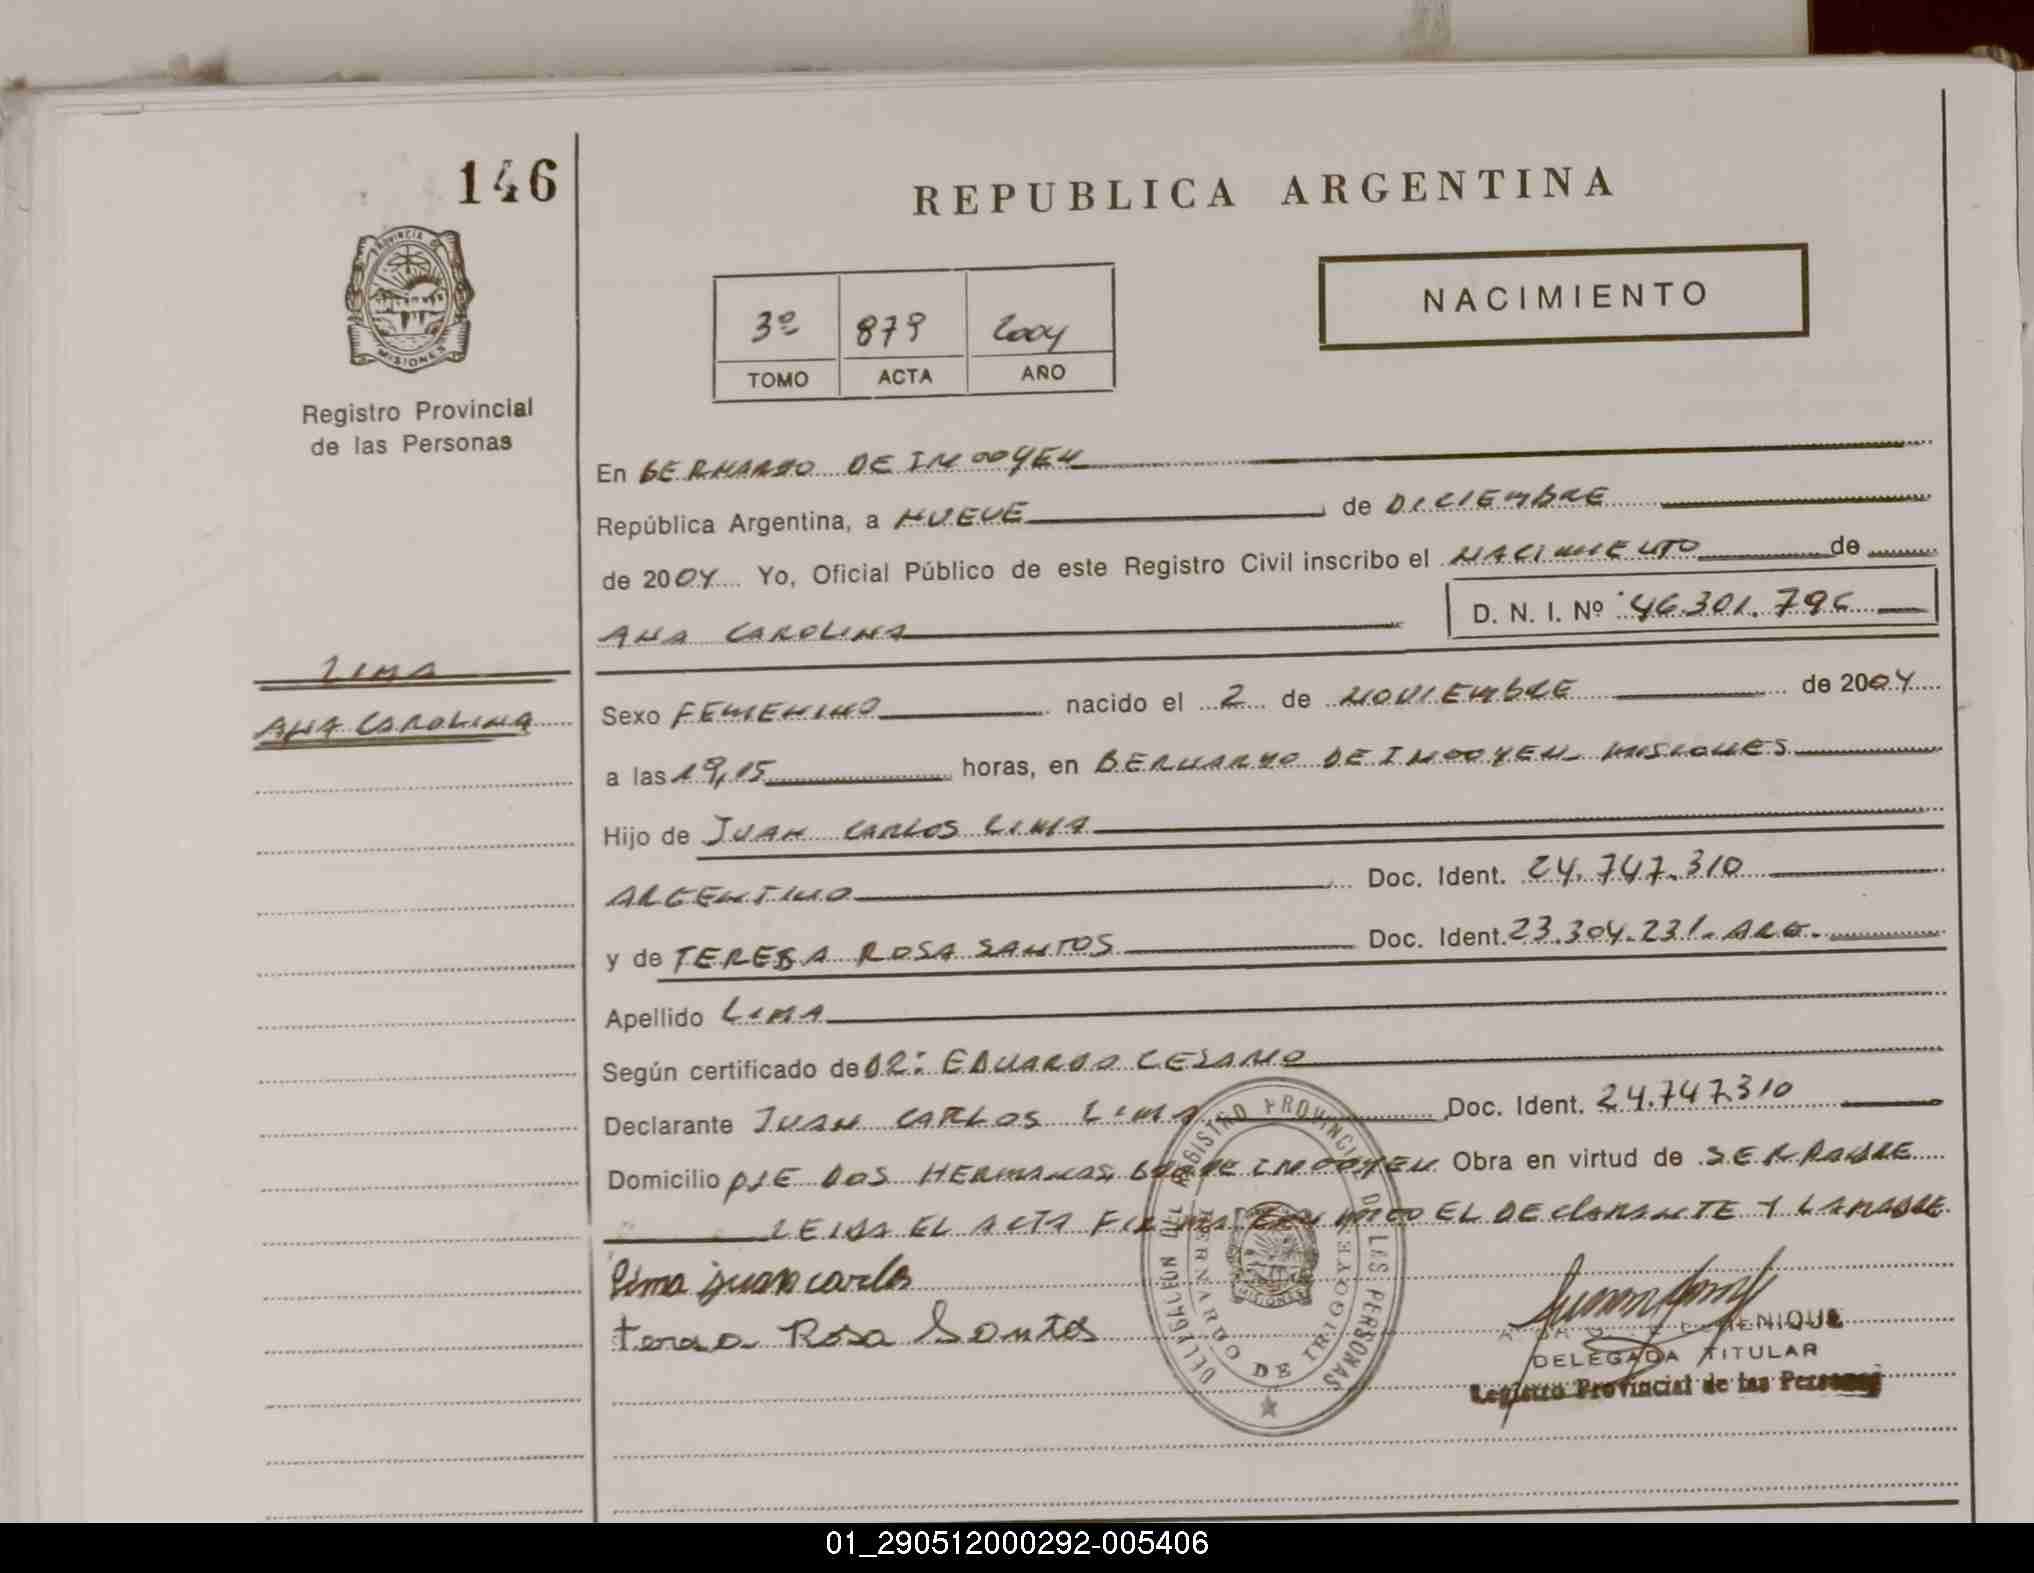 146
REPUBLICA ARGENTINA
PROVINCIA DE
MISIONES
Registro Provincial
de las Personas
3º 879 2004
TOMO ACTA AÑO
NACIMIENTO
En BERNARDO DE IRIGOYEN
República Argentina, a NUEVE de DICIEMBRE
de 2004 Yo, Oficial Público de este Registro Civil inscribo el NACIMIENTO de
ANA CAROLINA D. N. I. Nº 46.301.796
LIMA
ANA CAROLINA
Sexo FEMENINO nacido el 2 de NOVIEMBRE de 2004
a las 19,15 horas, en BERNARDO DE IRIGOYEN MISIONES
Hijo de JUAN CARLOS LIMA
ARGENTINO Doc. Ident. 24.747.310
y de TERESA ROSA SANTOS Doc. Ident. 23.304.231. ARG.
Apellido LIMA
Según certificado de DR: EDUARDO CESANO
Declarante JUAN CARLOS LIMA Doc. Ident. 24.747.310
Domicilio PJE DOS HERMANAS, BDO DE IRIGOYEN Obra en virtud de SER PADRE
LEIDA EL ACTA FIRMAN CONMIGO EL DECLARANTE Y LA MADRE
Lima juan carlos
Rosa Santos
DELEGACION DEL REGISTRO PROVINCIAL DE LAS PERSONAS
BERNARDO DE IRIGOYEN
MISIONES
DELEGADA TITULAR
Registro Provincial de las Personas
01_290512000292-005406